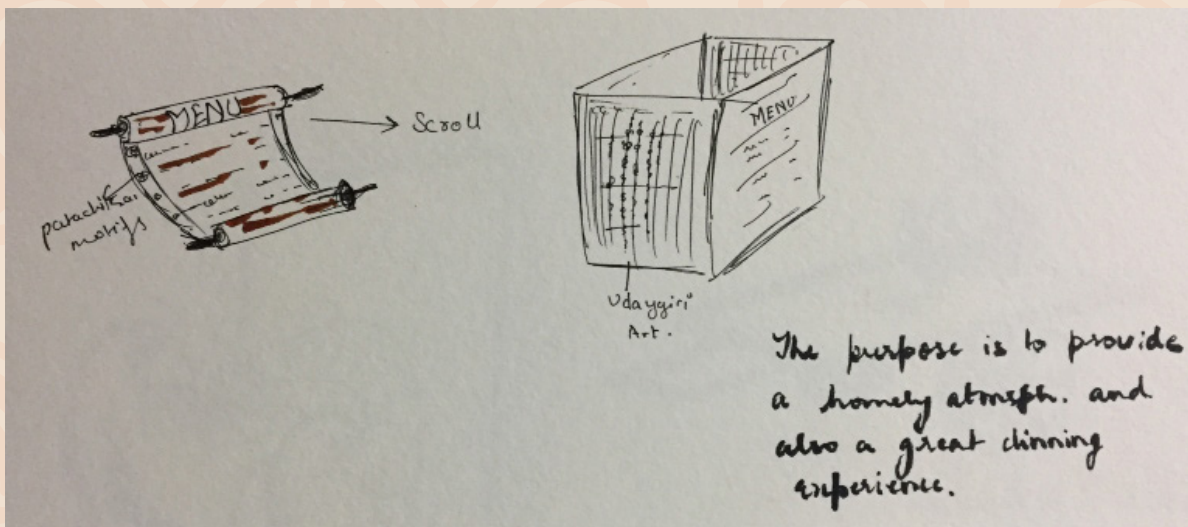 MENU
Scroll
patachitra
motifs
MENU
Udaygiri
Art.
The purpose is to provide
a homely atmsph. and
also a great dinning
experience.